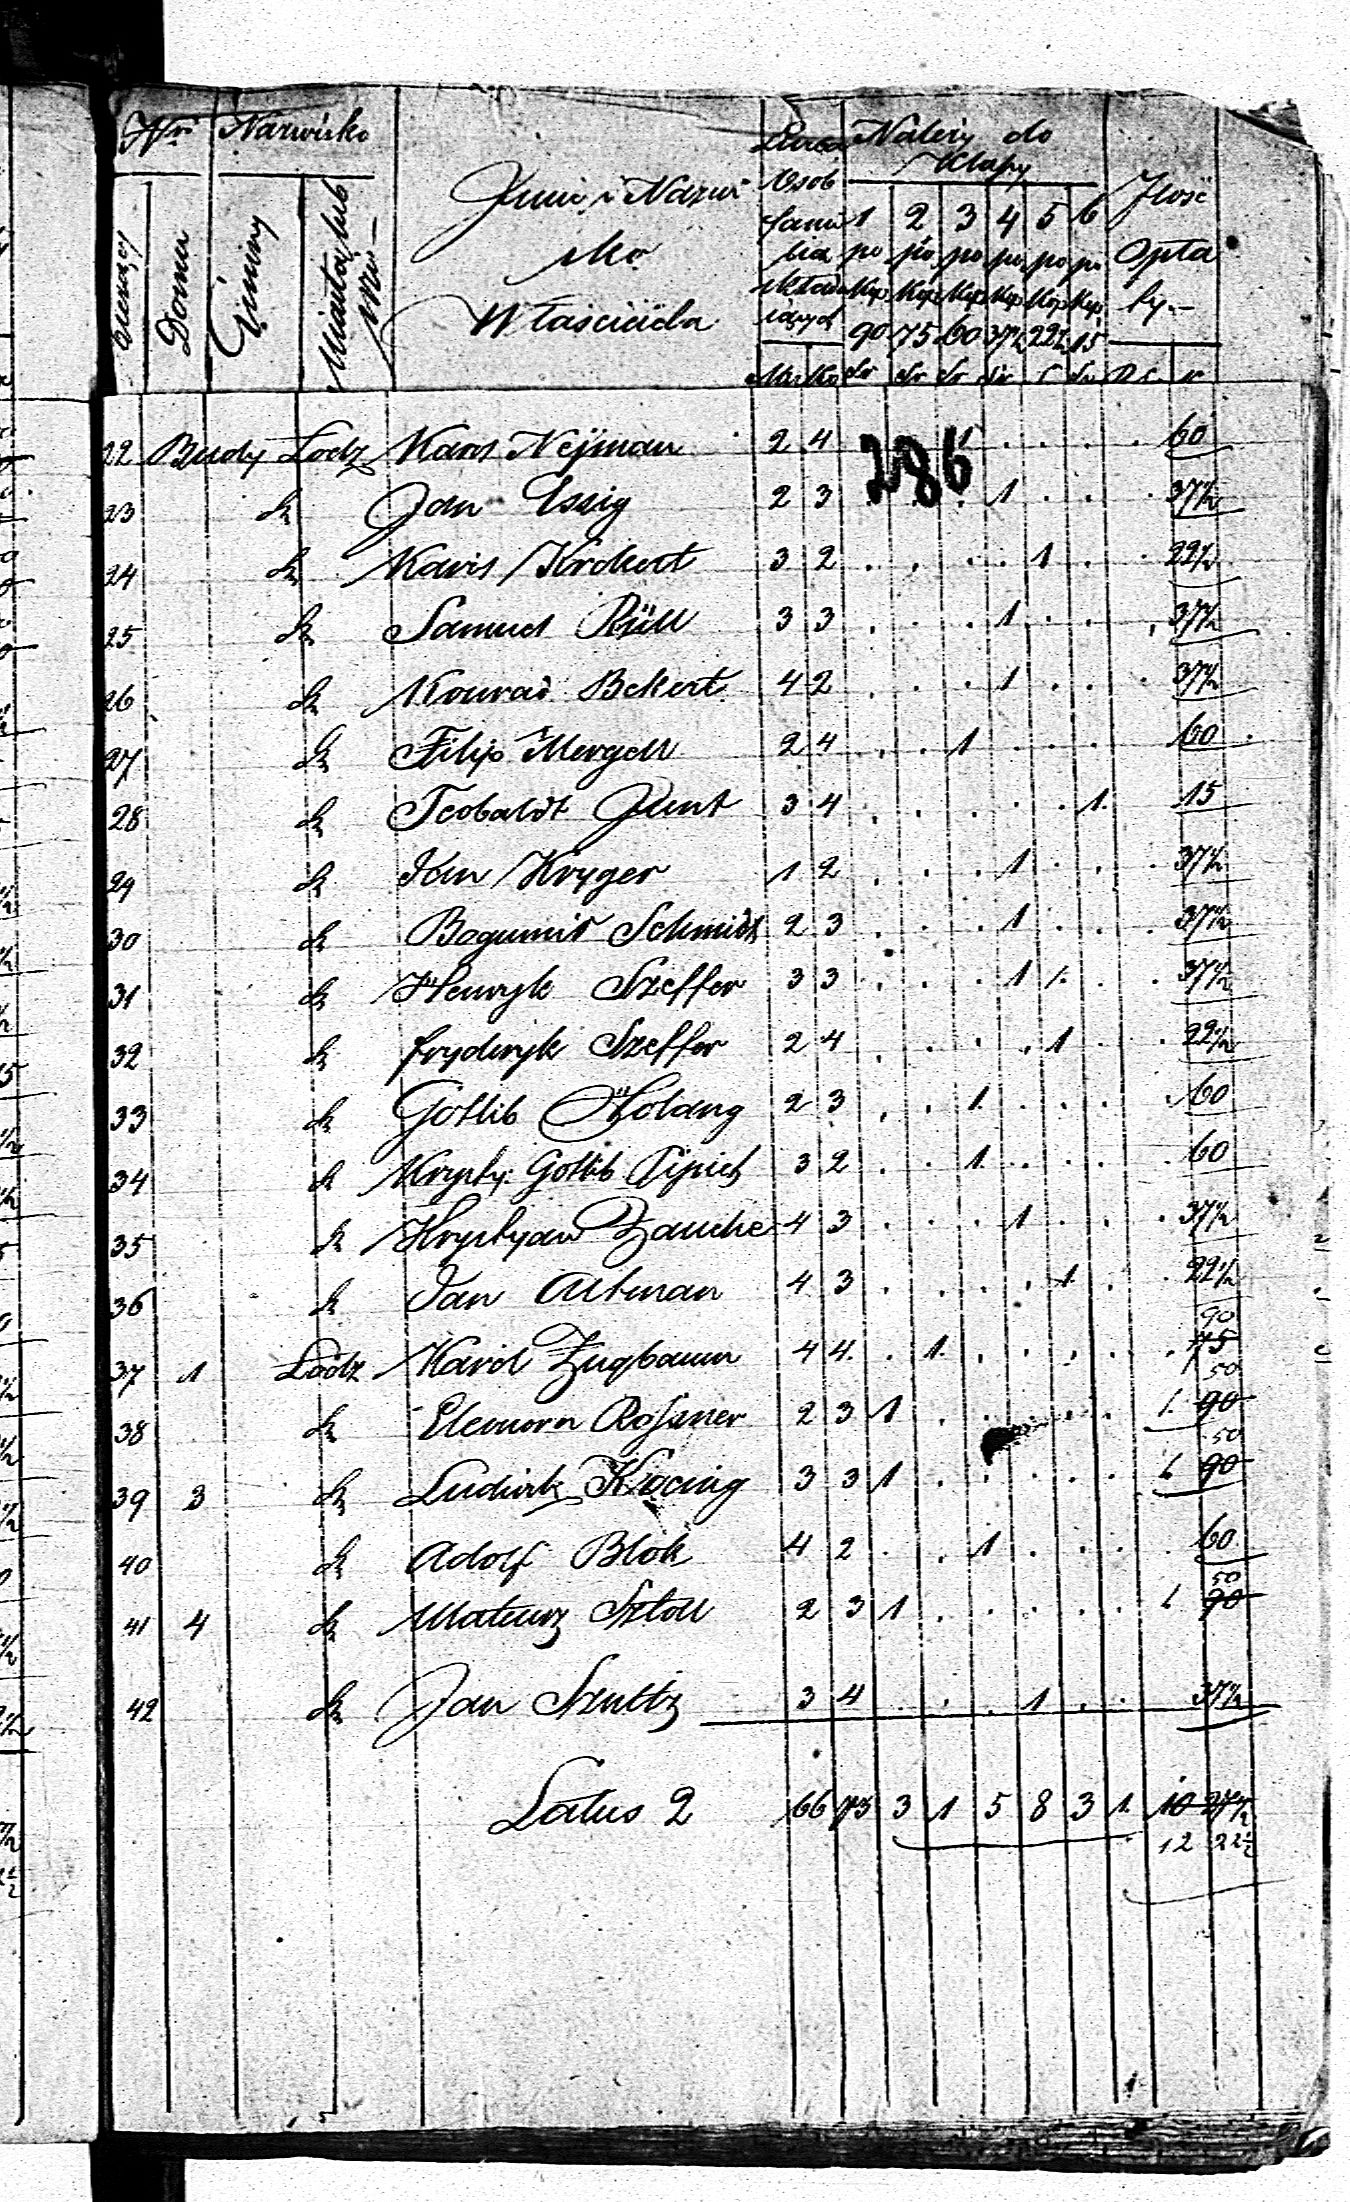 Nri Nazwisko
Należy do
Klassy
Bieżący
Domu
Gminy
Miasta lub
Wsi
Imie i Nazwi
sko
Właściciela
Liczba
Osób
fami
lia
składa
iących
1 2 3 4 5 6
po po po po po po
Kop Kop Kop Kop Kop Kop
90 75 60 37½ 22½ 15
Ilość
Opła
ty.-
22 Budy Lodz Karol Nejman 2 4 . . 1 . . . . 60
286
23 dt Jan Essig 2 3 . . . 1 . . . 37½
24 dt Karol Krokert 3 2 . . . . 1 . . 22½
25 dt Samuel Rÿll 3 3 . . . 1 . . . 37½
26 dt Konrad Bekert 4 2 . . . 1 . . . 37½
27 dt Filip Mergell 2 4 . . 1 . . . 60
28 dt Teobaldt Junt 3 4 . . . . . 1. 15
29 dt Jan Kryger 1 2 . . . 1 . . . 37½
30 dt Bogumił Schmidt 2 3 . . . 1 . . . 37½
31 dt Henryk Szeffer 3 3 . . . 1 . . . 37½
32 dt Fryderyk Szeffer 2 4 . . . . 1 . . 22½
33 dt Gottlib Holang 2 3 . . 1. . . . . 60
34 dt Krysty. Gottlib 3 2 . . 1. . . . . 60
35 dt Krystyan Zauche 4 3 . . . 1 . . . 37½
36 dt Jan Altman 4 3 . . . . 1 . . 22½
90
37 1 Lodz Karol Zugbaum 4 4. . 1. . . . . . 75
50
38 dt Eleonora Rossner 2 3 1 . . . . 1. 90
50
39 3 dt Ludwik Kocing 3 3 1 . . . . . 1. 90
40 dt Adolf Blok 4 2 . . 1 . . . . 60
50
41 4 dt Mateusz Sztoll 2 3 1 . . . . . 1. 90
42 dt Jan Szultz 3 4 . . . 1 . . 37½
Latus 2 66 73 3 1 5 8 3 1. 10 27½
12 22½